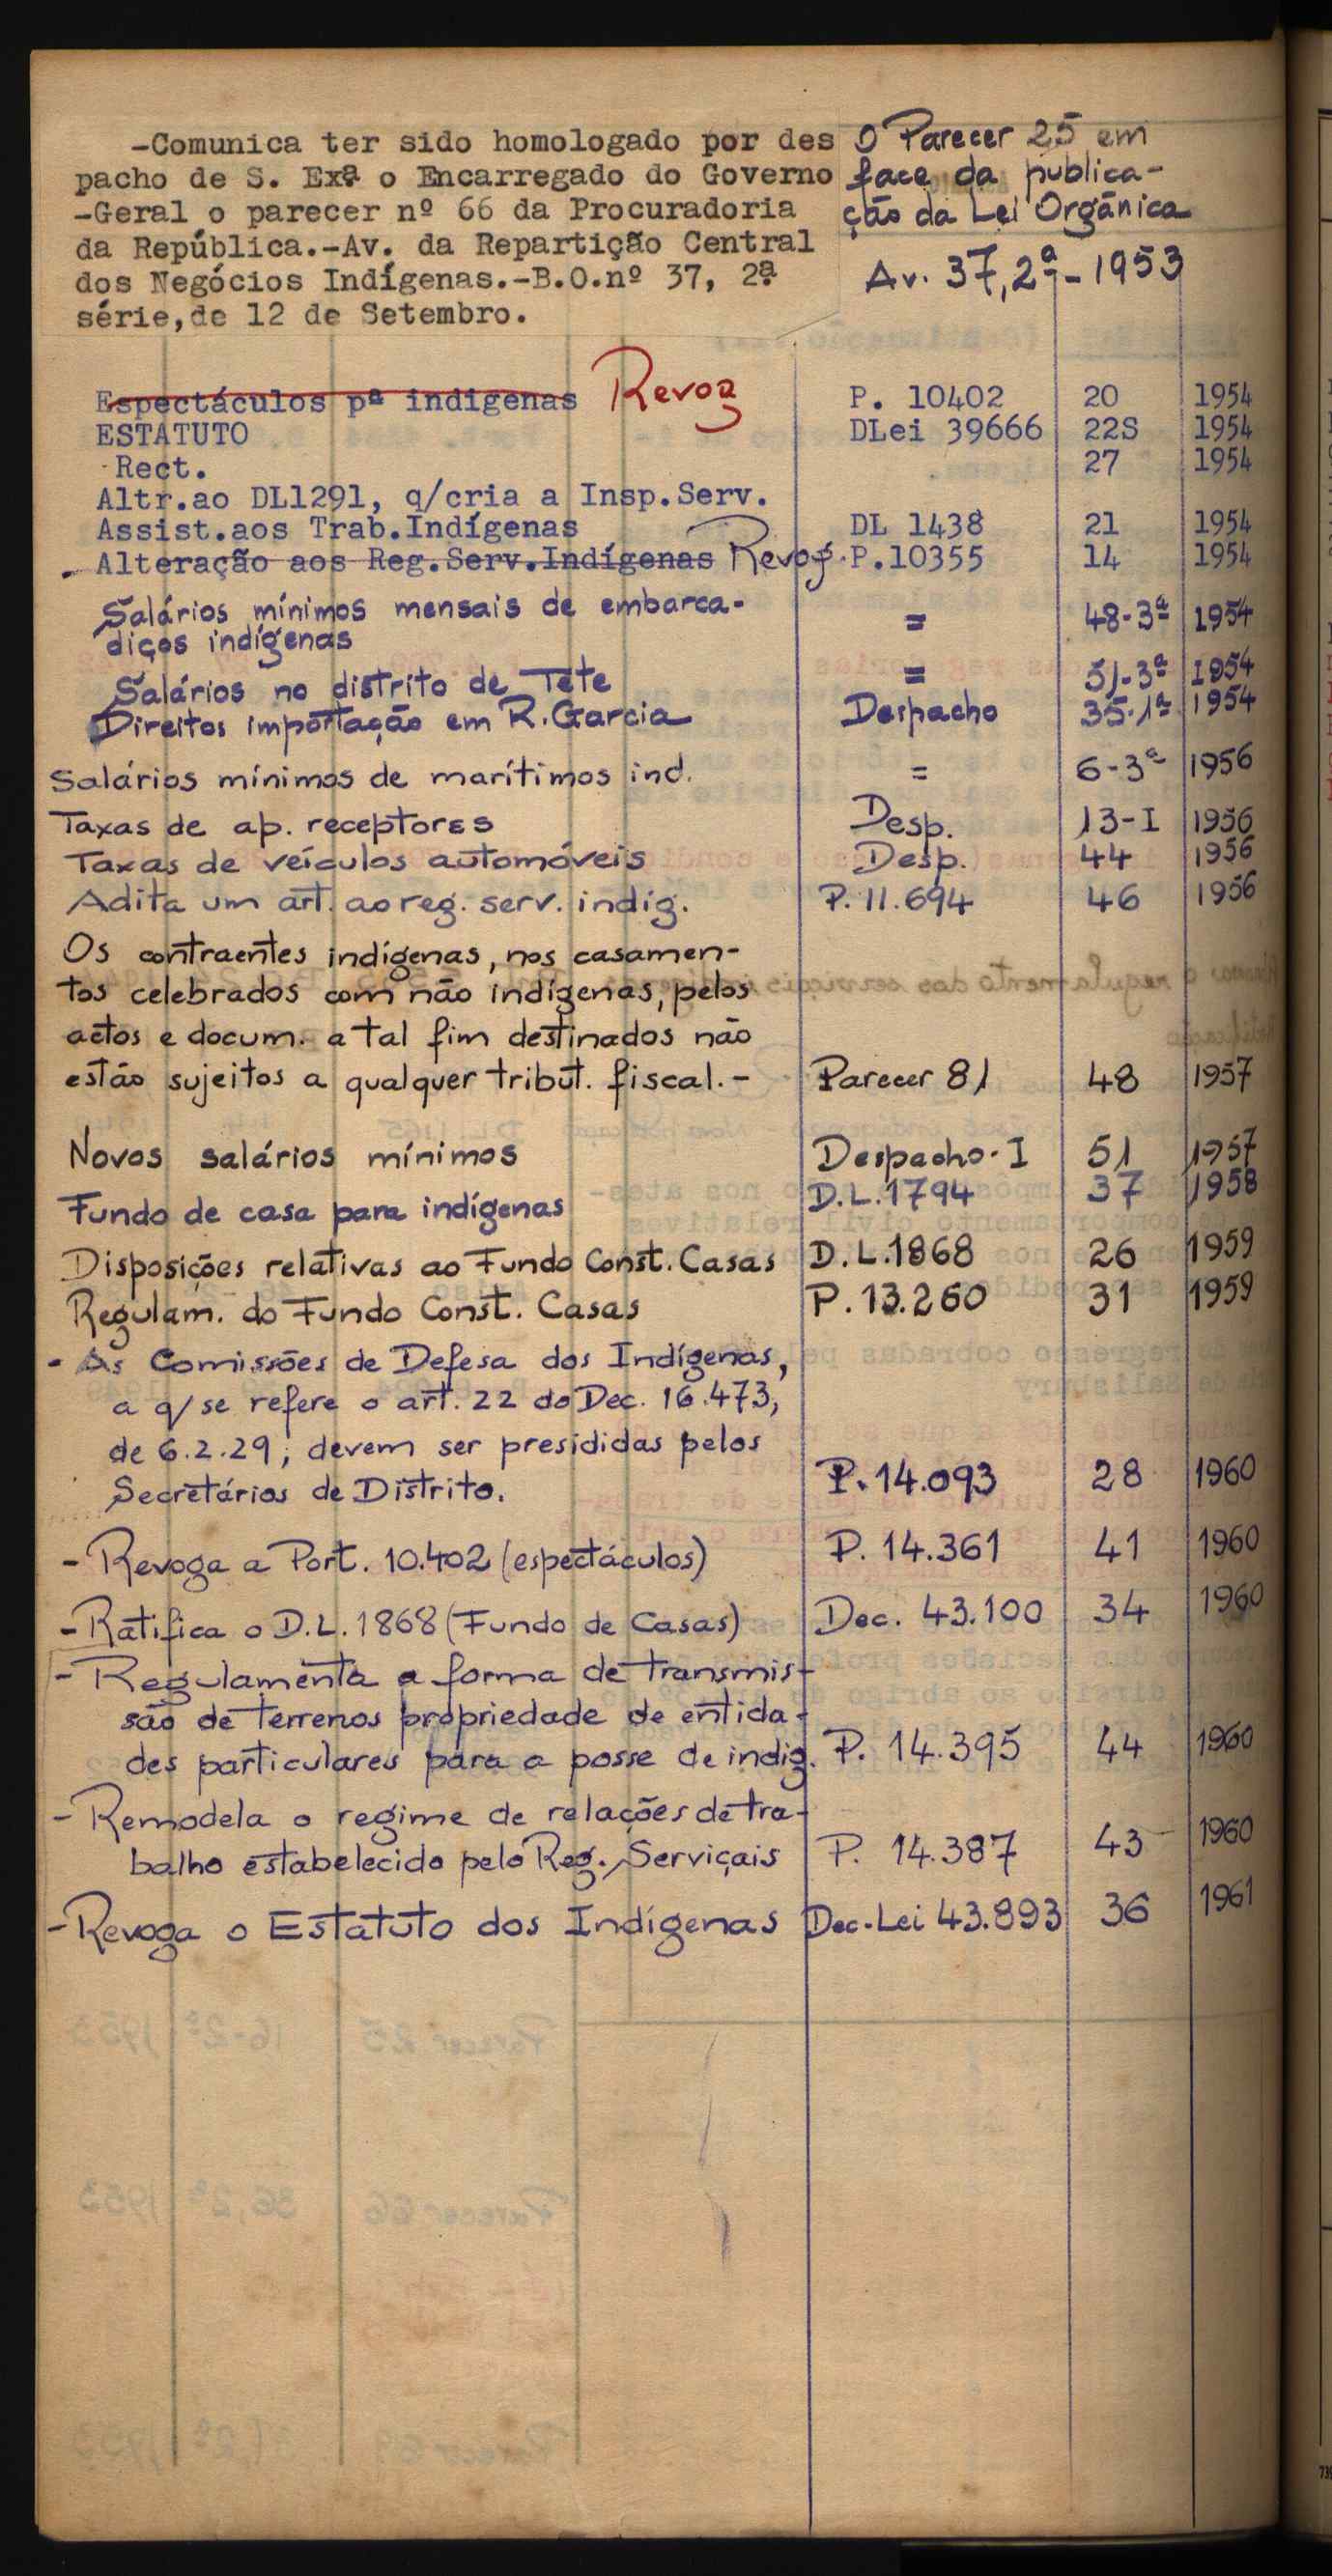 -Comunica ter sido homologado por des
pacho de S. Exª o Encarregado do Governo
-Geral o parecer nº 66 da Procuradoria
da República.-Av. da Repartição Central
dos Negócios Indígenas.-B.O.nº 37, 2ª
série,de 12 de Setembro.
O Parecer 25 em
face da publica-
ção da Lei Orgânica
Av. 37,2ª-1953
Espectáculos pª indigenas Revog P. 10402 20 1954
ESTATUTO DLei 39666 22S 1954
Rect. 27 1954
Altr.ao DL1291, q/cria a Insp.Serv.
Assist.aos Trab.Indígenas DL 1438 21 1954
Alteração aos Reg.Serv.Indígenas Revog. P.10355 14 1954
Salários mínimos mensais de embarca-
diços indígenas = 48-3ª 1954
Salários no distrito de Tete = 51-3ª 1954
Direitos importação em R. Garcia Despacho 35-1ª 1954
Salários mínimos de marítimos ind. = 6-3ª 1956
Taxas de ap. receptores Desp. 13-I 1956
Taxas de veículos automóveis Desp. 44 1956
Adita um art. ao reg. serv. indig. P. 11.694 46 1956
Os contraentes indígenas, nos casamen-
tos celebrados com não indígenas, pelos
actos e docum. a tal fim destinados não
estão sujeitos a qualquer tribut. fiscal.- Parecer 81 48 1957
Novos salários mínimos Despacho-I 51 1957
Fundo de casa para indígenas D.L.1794 37 1958
Disposições relativas ao Fundo Const. Casas D.L.1868 26 1959
Regulam. do Fundo Const. Casas P.13.260 31 1959
- As Comissões de Defesa dos Indígenas,
a q/ se refere o art. 22 do Dec. 16.473,
de 6.2.29, devem ser presididas pelos
Secretários de Distrito. P.14.093 28 1960
- Revoga a Port. 10.402 (espectáculos) P. 14.361 41 1960
- Ratifica o D.L. 1868 (Fundo de Casas) Dec. 43.100 34 1960
- Regulamenta a forma de transmis-
são de terrenos propriedade de entida-
des particulares para a posse de indig. P. 14.395 44 1960
- Remodela o regime de relações de tra-
balho estabelecido pelo Reg. Serviçais P. 14.387 43 1960
- Revoga o Estatuto dos Indígenas Dec-Lei 43.893 36 1961